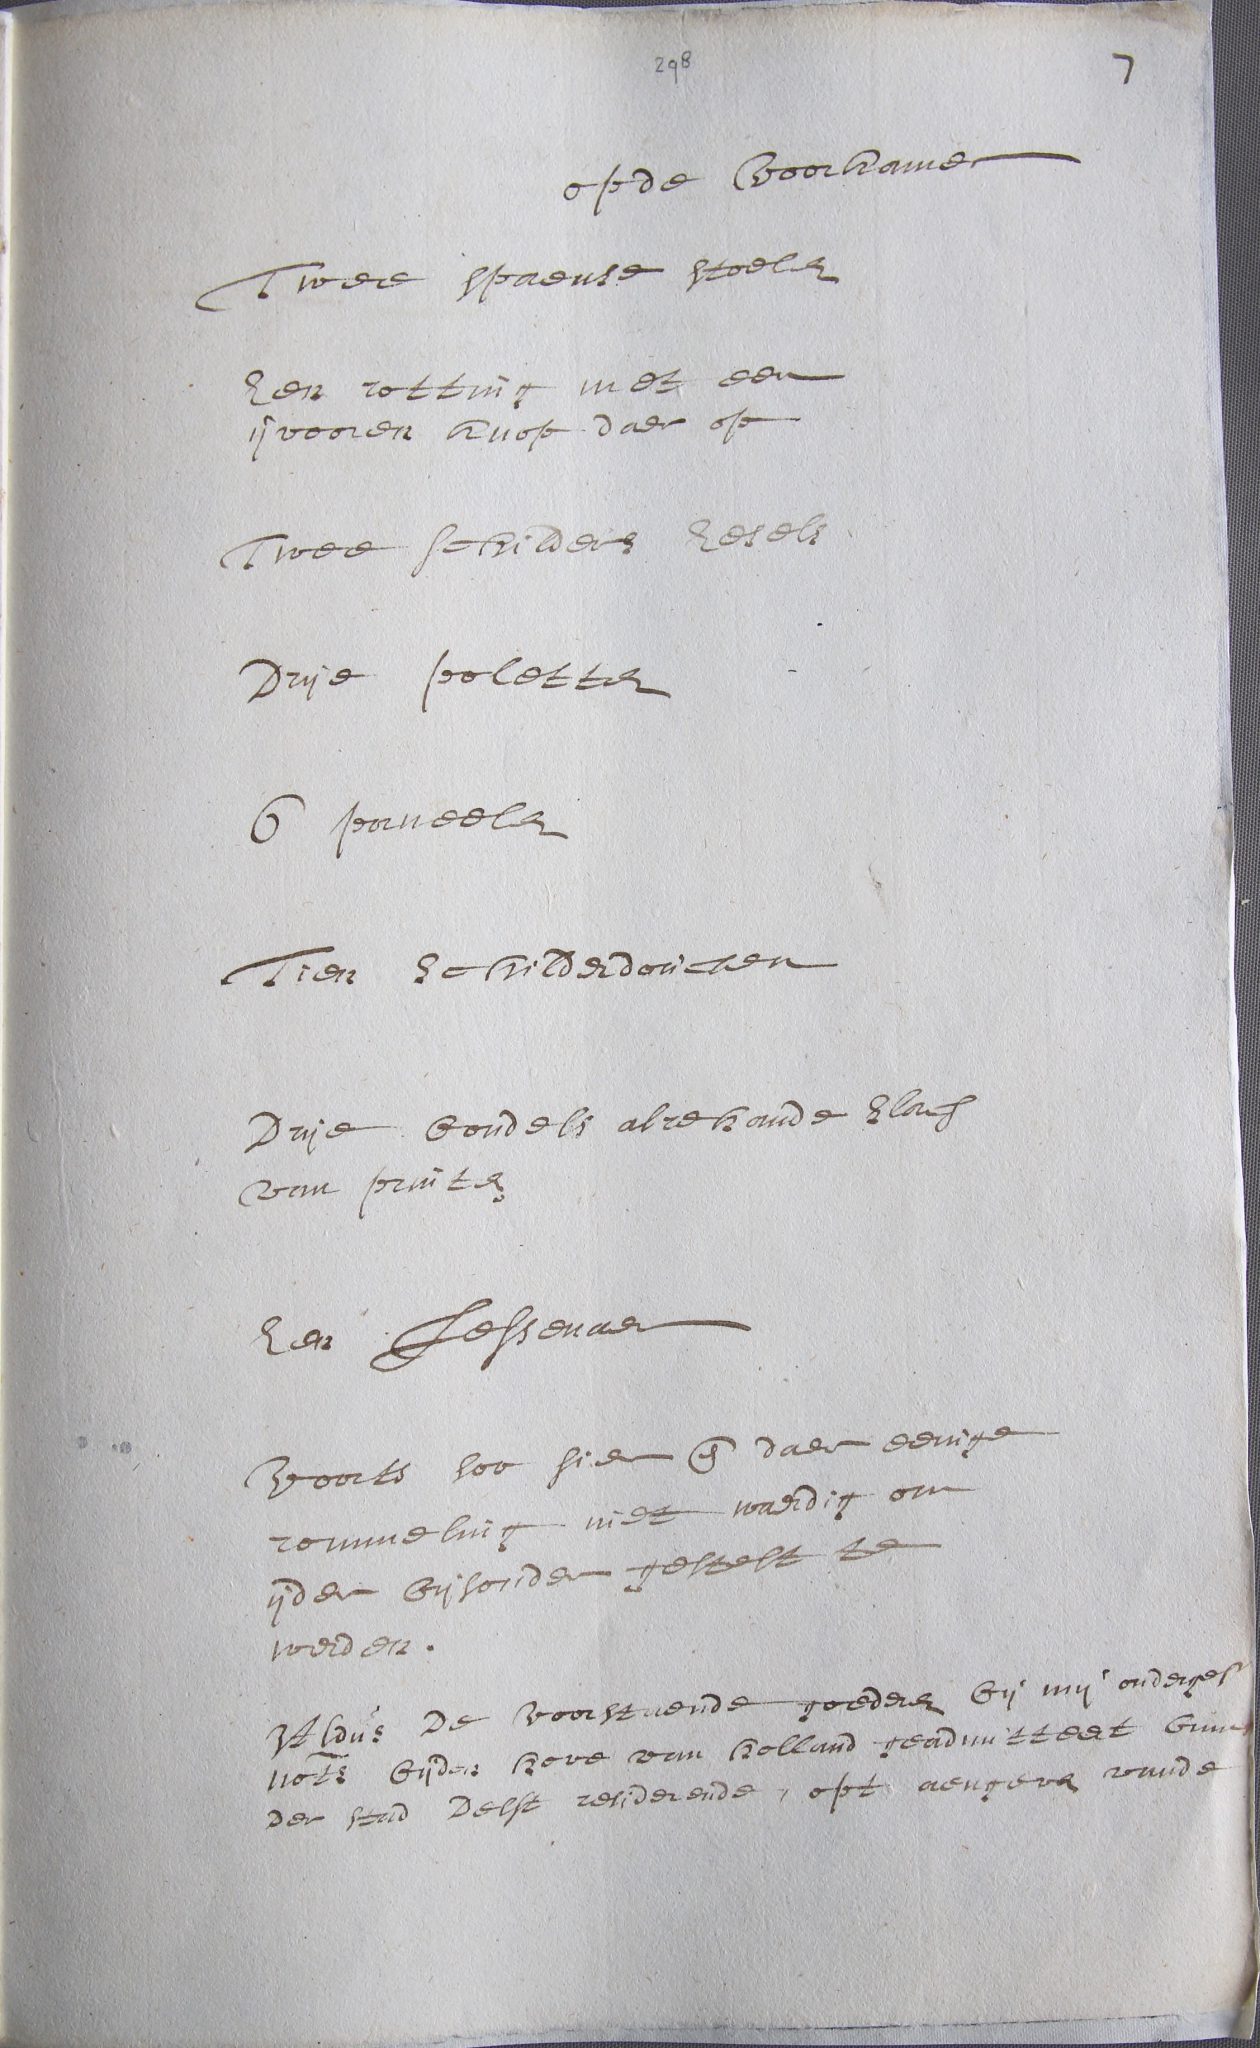 298
7
opde Voorkamer
Twee spaense stoelen
Een rotting met een
ijvooren knop daer op
Twee schilders Eesels
Drije poletten
6 paneelen
Tien schilderdoucken
Drije bondels alrehande slach
van printen
Een Lessenaer
Voorts soo hier en daer eenige
rommeling niet waerdig om
ijder bijsonder gestelt te
werden.
Aldus de voorstaende goederen bij mij onderges
nots bijden hove van Holland geadmitteert binnen
der stad Delft residerende, opt aengeven vande